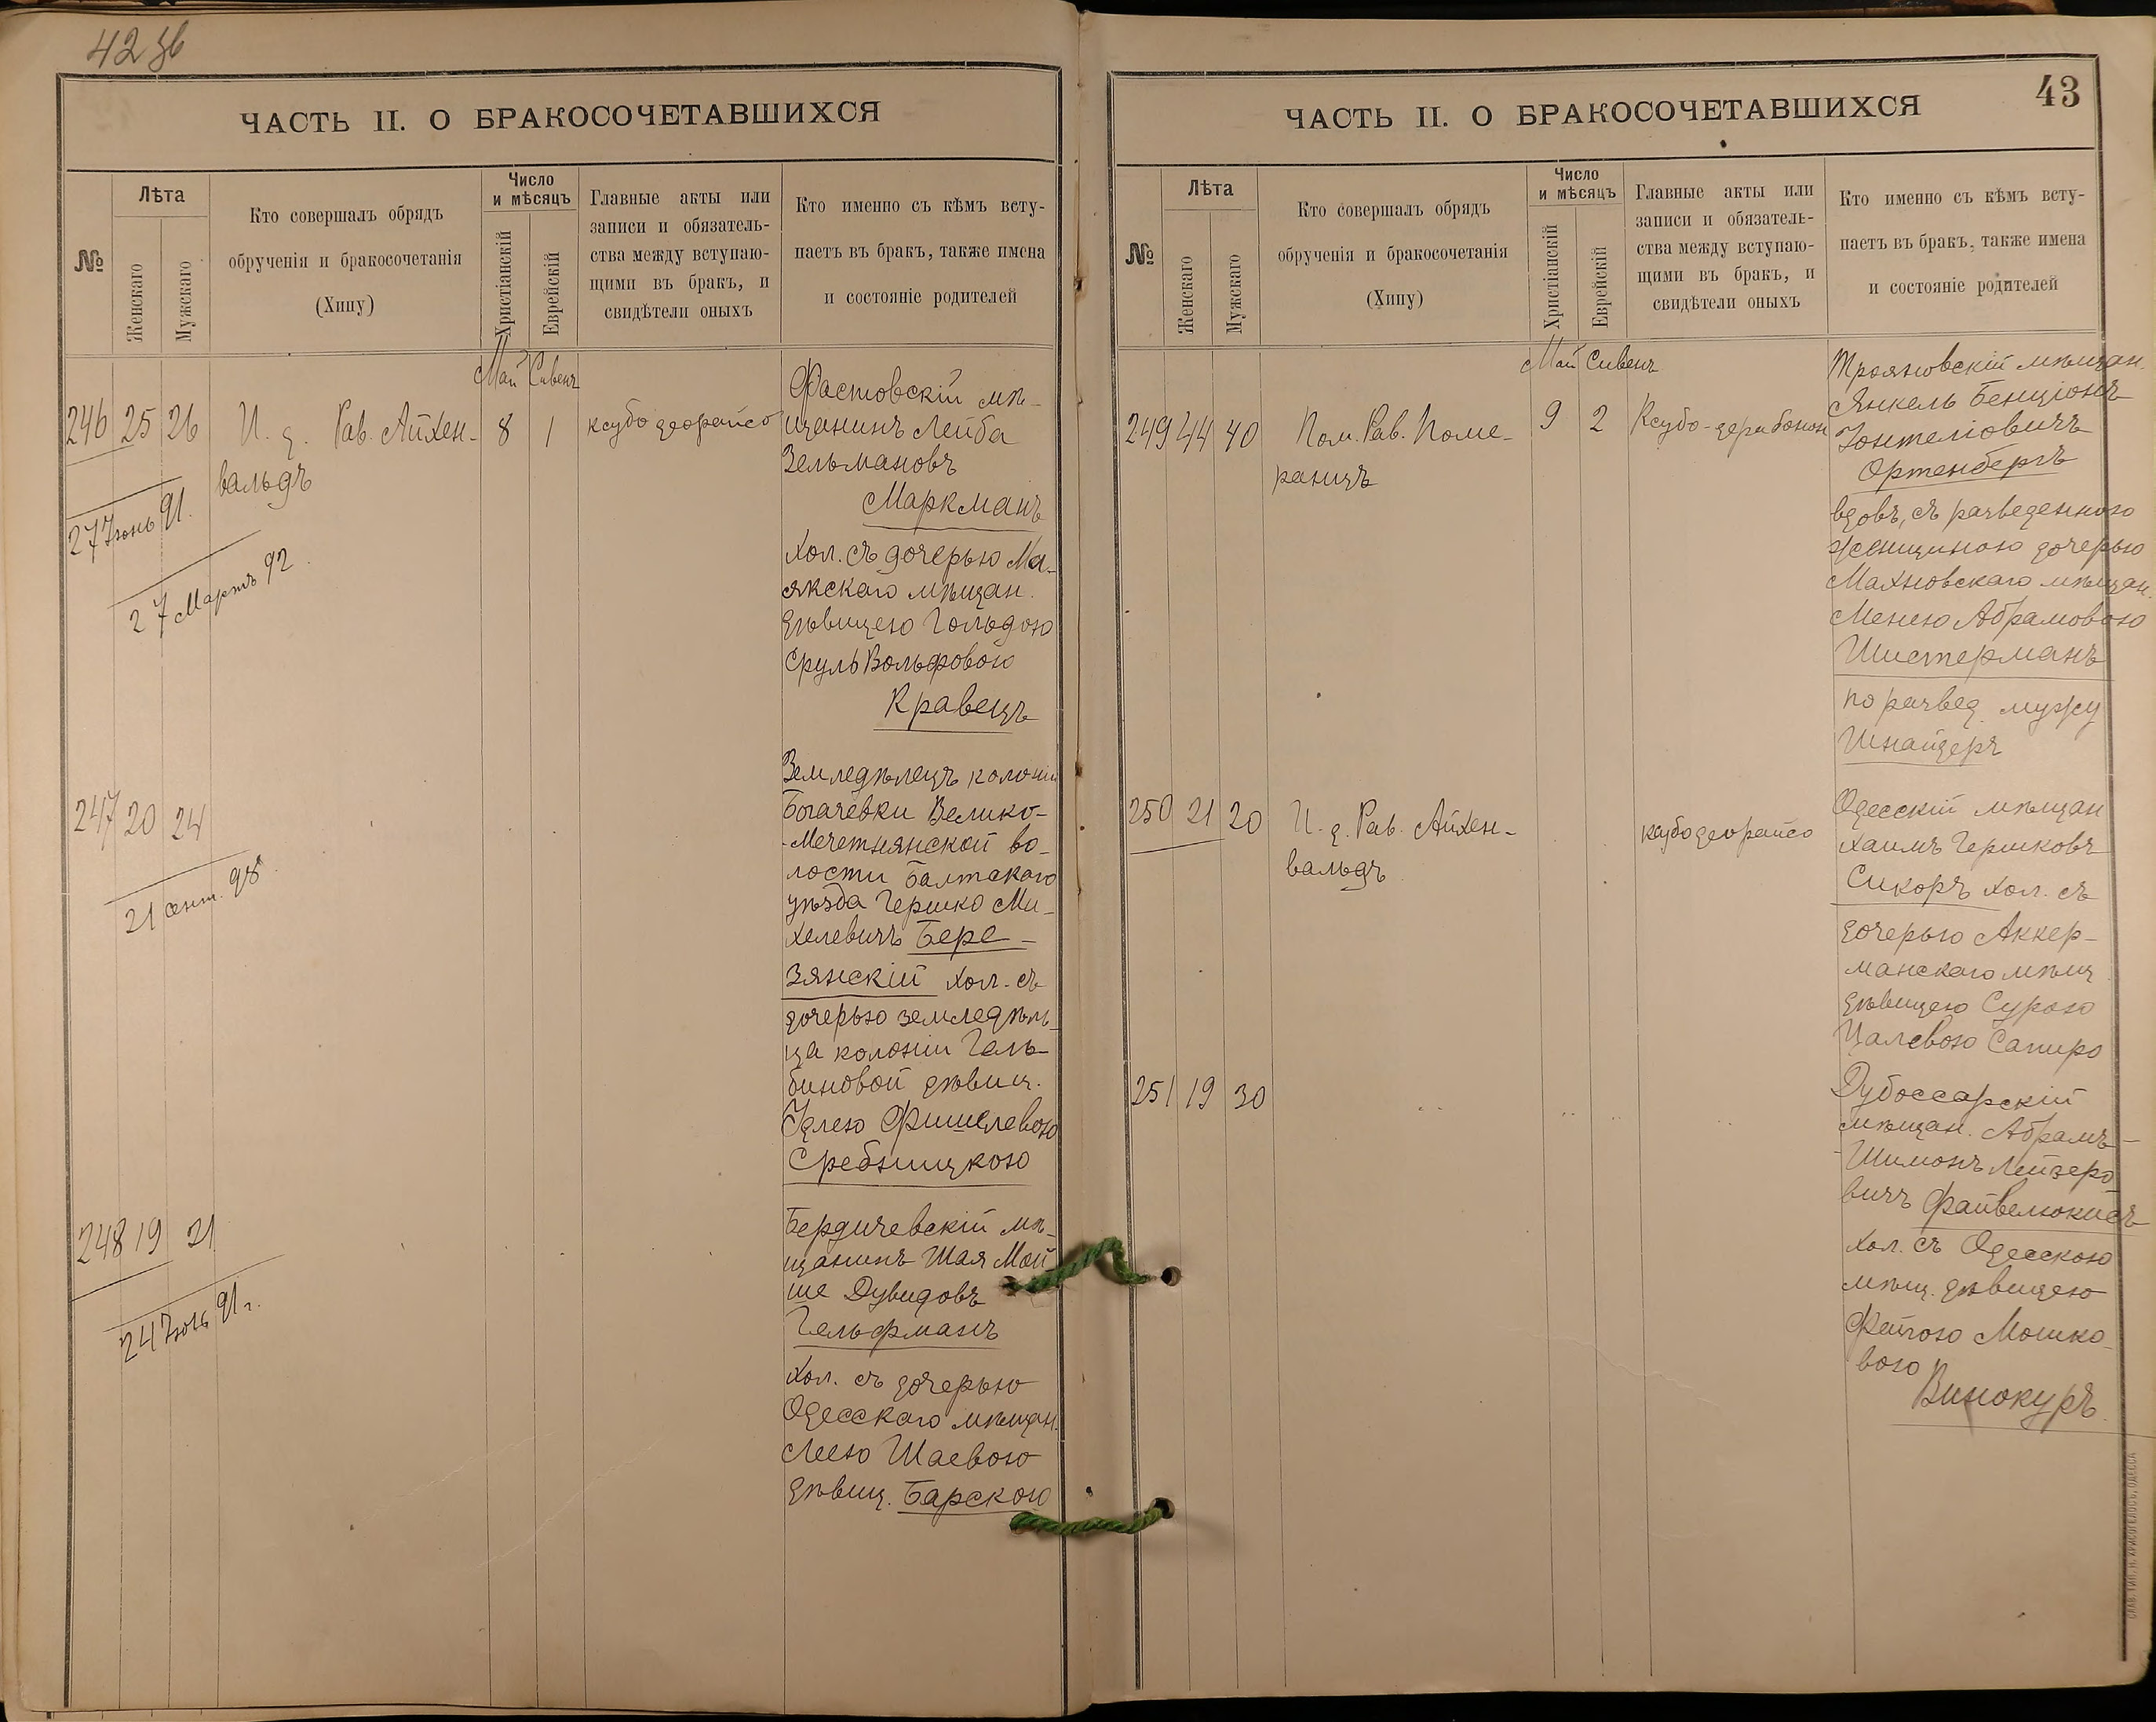 42 зв
ЧАСТЬ II. О БРАКОСОЧЕТАВШИХСЯ
№
Лѣта
Женскаго
Мужскаго
Кто совершалъ обрядъ
обрученія и бракосочетанія
(Хипу)
Число
и мѣсяцъ
Христіанскій
Еврейскій
Главные акты или
записи и обязатель-
ства между вступаю-
щими въ бракъ, и
свидѣтели оныхъ
Кто именно съ кѣмъ всту-
паетъ въ бракъ, также имена
и состояніе родителей
Май Сивенъ
246 25 26 И. д. Рав. Айхен-
вальдъ
8 1 ксубо деорайсо
Фастовскій мѣ-
щанинъ Лейба
Зельмановъ
Маркманъ
хол. съ дочерью Ма-
якскаго мѣщан.
дѣвицею Гольдою
Сруль Вольфовою
Кравецъ
27 Іюнь 91.
27 Мартъ 92.
247 20 24
Земледѣлецъ колоніи
Богачевки Велико-
-Мечетнянской во-
лости Балтскаго
уѣзда Гершко Ми-
хелевичъ Бере-
зянскій хол. съ
дочерью земледѣль-
ца колоніи Галь-
биновой дѣвиц.
Идлею Фишелевою
Сребницкою
21 сент. 98
248 19 21
Бердичевскій мѣ-
щанинъ Шая Мой
ше Дувидовъ
Гельфманъ
хол. съ дочерью
Одесскаго мѣщан.
Леею Шаевою
дѣвиц. Барскою
24 Іюль 91 г.
43
ЧАСТЬ II. О БРАКОСОЧЕТАВШИХСЯ
№
Лѣта
Женскаго
Мужскаго
Кто совершалъ обрядъ
обрученія и бракосочетанія
(Хипу)
Число
и мѣсяцъ
Христіанскій
Еврейскій
Главные акты или
записи и обязатель-
ства между вступаю-
щими въ бракъ, и
свидѣтели оныхъ
Кто именно съ кѣмъ всту-
паетъ въ бракъ, также имена
и состояніе родителей
Май Сивенъ
249 44 40 Пом. Рав. Поме-
ранцъ
9 2 Ксубо-дерабонон
Трояновскій мѣщан.
Янкель Бенціонъ
Іонтеліовичъ
Ортенбергъ
вдовъ, съ разведенною
женщиною дочерью
Махновскаго мѣщан.
Менею Абрамовою
Шистерманъ
по развед. мужу
Шнайдеръ
250 21 20 И. д. Рав. Айхен-
вальдъ
ксубо деорайсо
Одесскій мѣщан
Хаимъ Гершковъ
Сикоръ хол. съ
дочерью Аккер-
манскаго мѣщ
дѣвицею Сурою
Цалевою Сапиро
251 19 30
Дубоссарскій
мѣщан. Абрамъ-
-Шимонъ Лейзеро
вичъ Файвелюкисъ
хол. съ Одесскою
мѣщ. дѣвицею
Фейгою Мошко
вою
Винокуръ
СЛАВ. ТИП. Н. ХРИСОГЕЛОСЪ, ОДЕССА